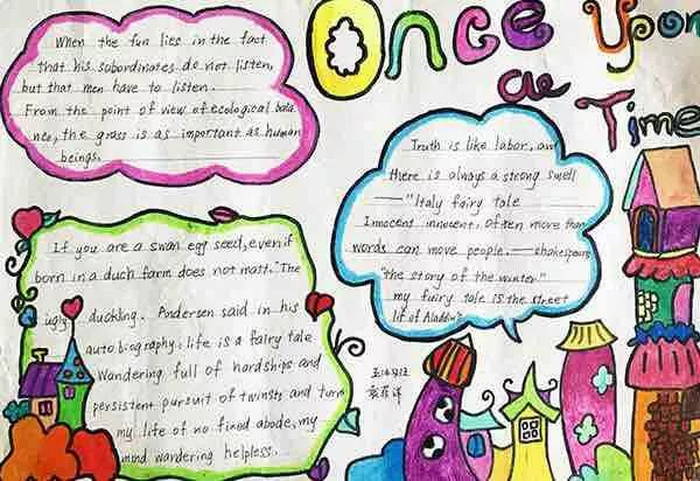 Once Upon
a
Time
When the fun lies in the fact
that his subordinates do not listen,
but that men have to listen.
From the point of view of ecological bala
nce, the grass is as important as human
beings.
Truth is like labor, an
there is always a strong smell
——"Italy fairy tale
Innocent innocent, often more than
words can move people.——shakespeare
"the story of the winter"
my fairy tale is the street
lif of Aladdin's
If you are a swan egg seed, even if
born in a duch farm does not matt."The
ugly duckling. Andersen said in his
autobiography: life is a fairy tale
Wandering full of hardships and
persistent pursuit of twinsts and turn
my life of no fixed abode, my
mind wandering helpless.